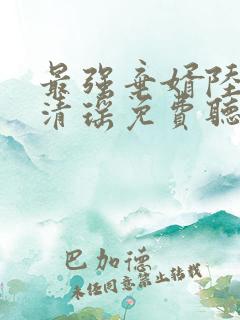 最强弃婿陆
清瑶免費聽
巴加德
未经同意禁止转载